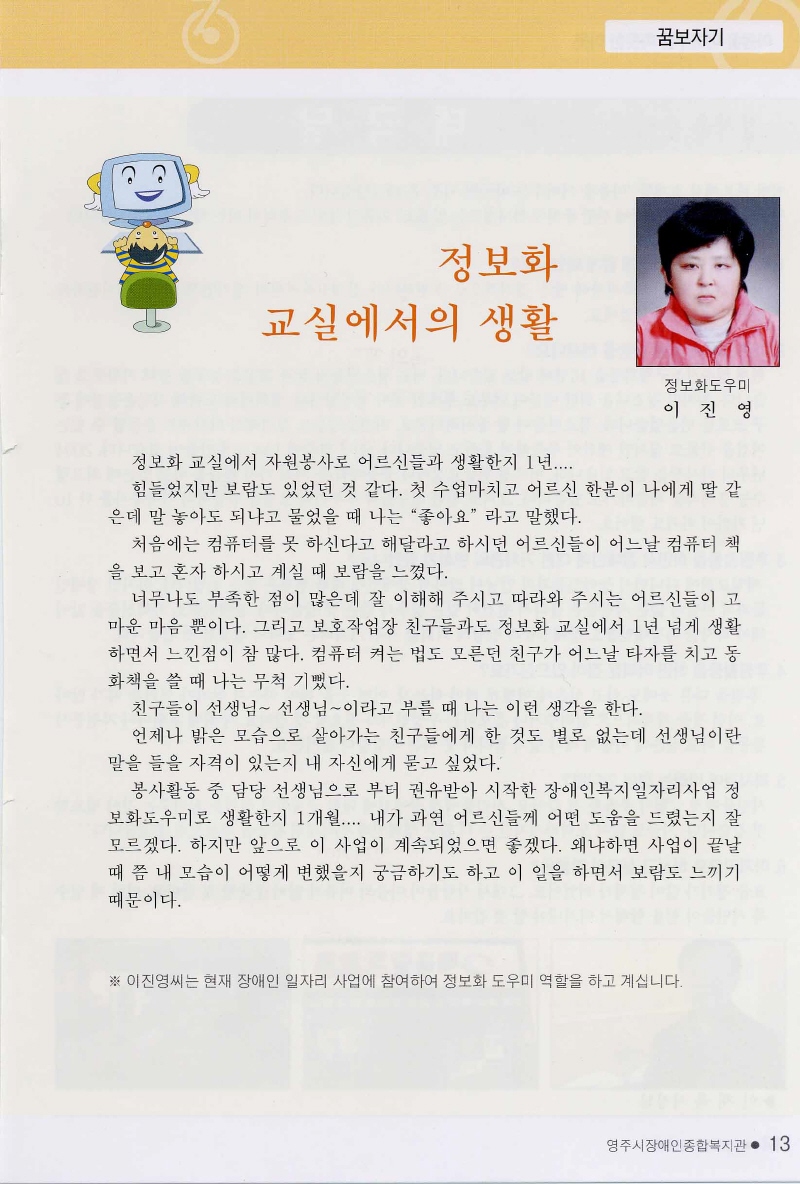 꿈보자기
정보화
교실에서의 생활
정보화도우미
이 진 영
정보화 교실에서 자원봉사로 어르신들과 생활한지 1년....
힘들었지만 보람도 있었던 것 같다. 첫 수업마치고 어르신 한분이 나에게 딸 같
은데 말 놓아도 되냐고 물었을 때 나는 “좋아요” 라고 말했다.
처음에는 컴퓨터를 못 하신다고 해달라고 하시던 어르신들이 어느날 컴퓨터 책
을 보고 혼자 하시고 계실 때 보람을 느꼈다.
너무나도 부족한 점이 많은데 잘 이해해 주시고 따라와 주시는 어르신들이 고
마운 마음 뿐이다. 그리고 보호작업장 친구들과도 정보화 교실에서 1년 넘게 생활
하면서 느낀점이 참 많다. 컴퓨터 켜는 법도 모른던 친구가 어느날 타자를 치고 동
화책을 쓸 때 나는 무척 기뻤다.
친구들이 선생님~ 선생님~이라고 부를 때 나는 이런 생각을 한다.
언제나 밝은 모습으로 살아가는 친구들에게 한 것도 별로 없는데 선생님이란
말을 들을 자격이 있는지 내 자신에게 묻고 싶었다.
봉사활동 중 담당 선생님으로 부터 권유받아 시작한 장애인복지일자리사업 정
보화도우미로 생활한지 1개월.... 내가 과연 어르신들께 어떤 도움을 드렸는지 잘
모르겠다. 하지만 앞으로 이 사업이 계속되었으면 좋겠다. 왜냐하면 사업이 끝날
때 쯤 내 모습이 어떻게 변했을지 궁금하기도 하고 이 일을 하면서 보람도 느끼기
때문이다.
※ 이진영씨는 현재 장애인 일자리 사업에 참여하여 정보화 도우미 역할을 하고 계십니다.
영주시장애인종합복지관 ● 13